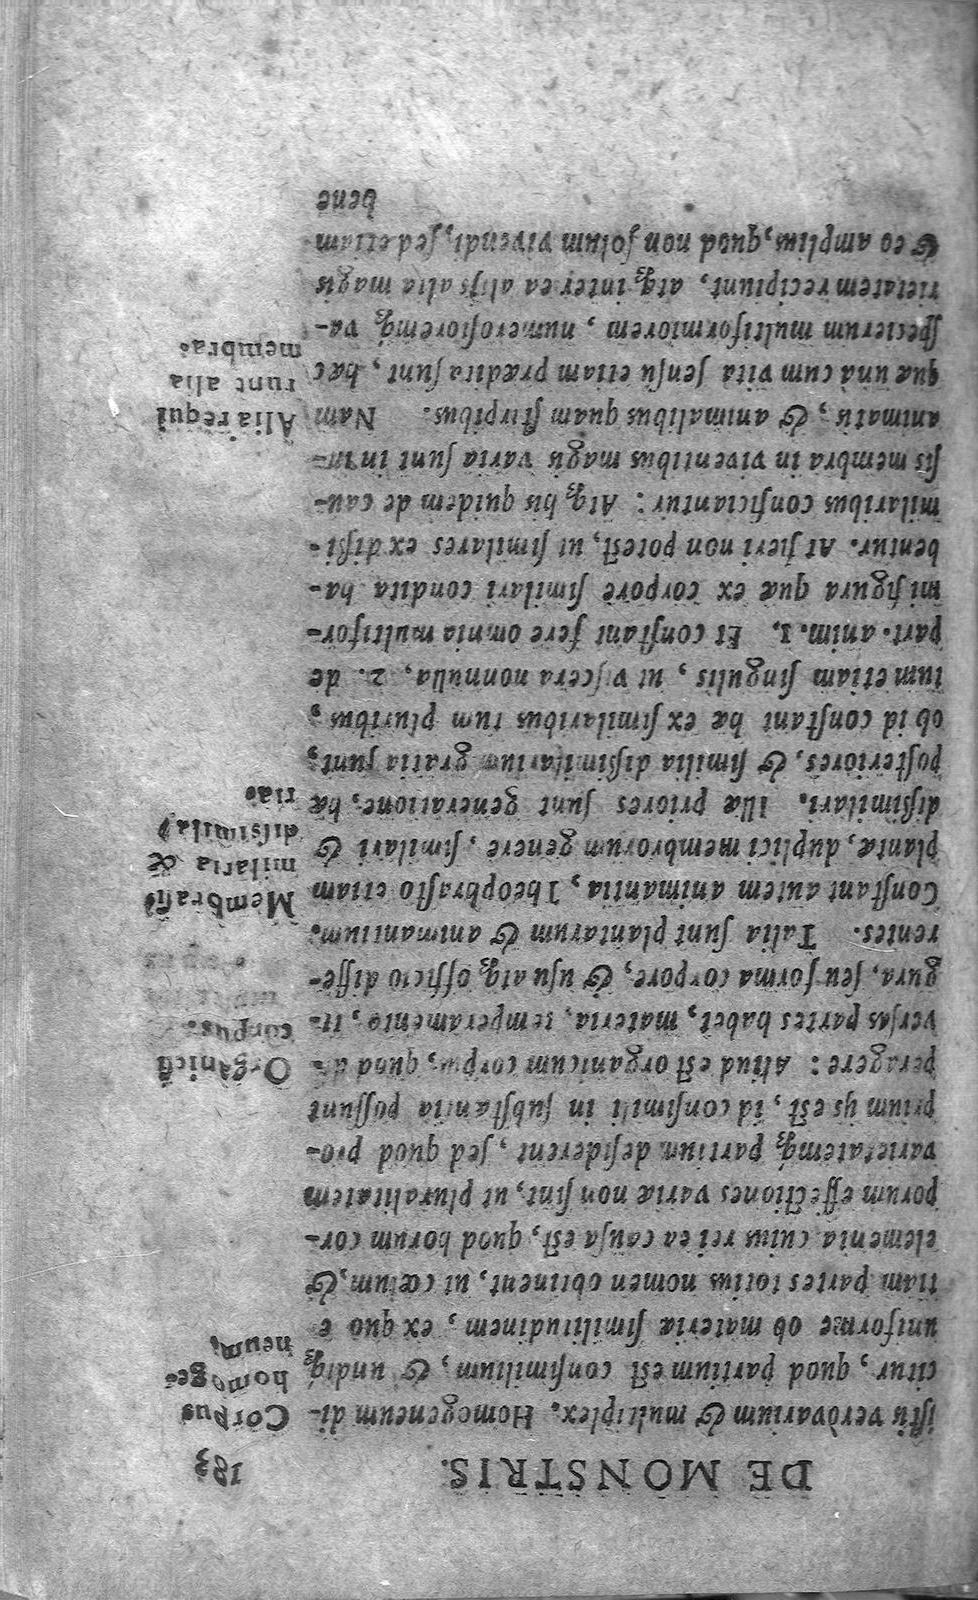 DE MONSTRIS. 183
istis verò varium & multiplex. Homogeneum di-
citur, quod partium est consimilium, & undiq;
uniforme ob materiæ similitudinem, ex quo e
tiam partes totius nomen obtinent, ut cœlum, &
elementa cuius rei ea causa est, quod horum cor-
porum effectiones variæ non sint, ut pluralitatem
varietatemq; partium desiderent, sed quod pro-
prium ijs est, id consimili in substantia possunt
peragere: Aliud est organicum corpus, quod di-
versas partes habet, materia, temperamento, fi-
gura, seu forma corpore, & usu atq; officio diffe-
rentes. Talia sunt plantarum & animantium.
Constant autem animantia, Theophrasto etiam
plantæ, duplici membrorum genere, similari &
dissimilari. Illæ priores sunt generatione, hæ
posteriores, & similia dissimilarium gratia sunt,
ob id constant hæ ex similaribus tum pluribus,
tum etiam singulis, ut viscera nonnulla. 2. de
part. anim. 1. Et constant fere omnia multifor-
mi figura quæ ex corpore similari condita ha-
bentur. At fieri non potest, ut similares ex dissi-
milaribus conficiantur: Atq; his quidem de cau-
sis membra in viventibus magis varia sunt in in-
animatis, & animalibus quam stirpibus. Nam
quæ unà cum vita sensu etiam prædita sunt, hæc
specierum multiformiorem, numerosioremq; va-
rietatem recipiunt, atq; inter ea alijs alia magis
& eo amplius, quod non solum vivendi, sed etiam
bene
Corpus
homoge-
neum.
Organicũ
corpus.
Membra si-
milaria &
dissimila-
ria.
Alia requi
runt alia
membra.